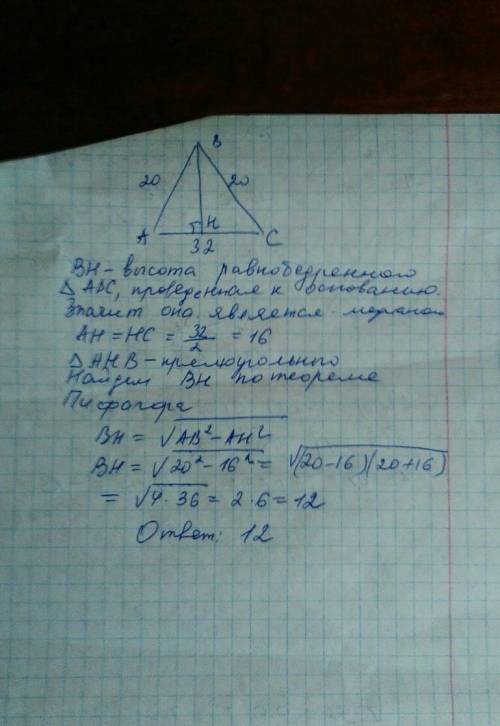 B
20 20
A H C
32
BH - высота равнобедренного
△ ABC, проведенная к основанию.
Значит она является медианой
AH = HC = 32/2 = 16
△ AHB - прямоугольного
Найдем BH по теореме
Пифагора
BH = √AB² - AH²
BH = √20² - 16² = √(20-16)(20+16)
= √4·36 = 2·6 = 12
Ответ: 12